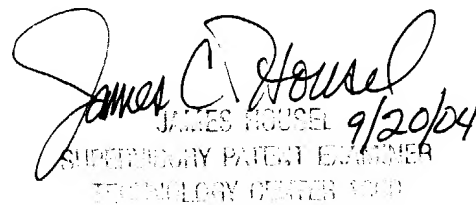 James C Housel
JAMES HOUSEL 9/20/04
SUPERVISORY PATENT EXAMINER
TECHNOLOGY CENTER